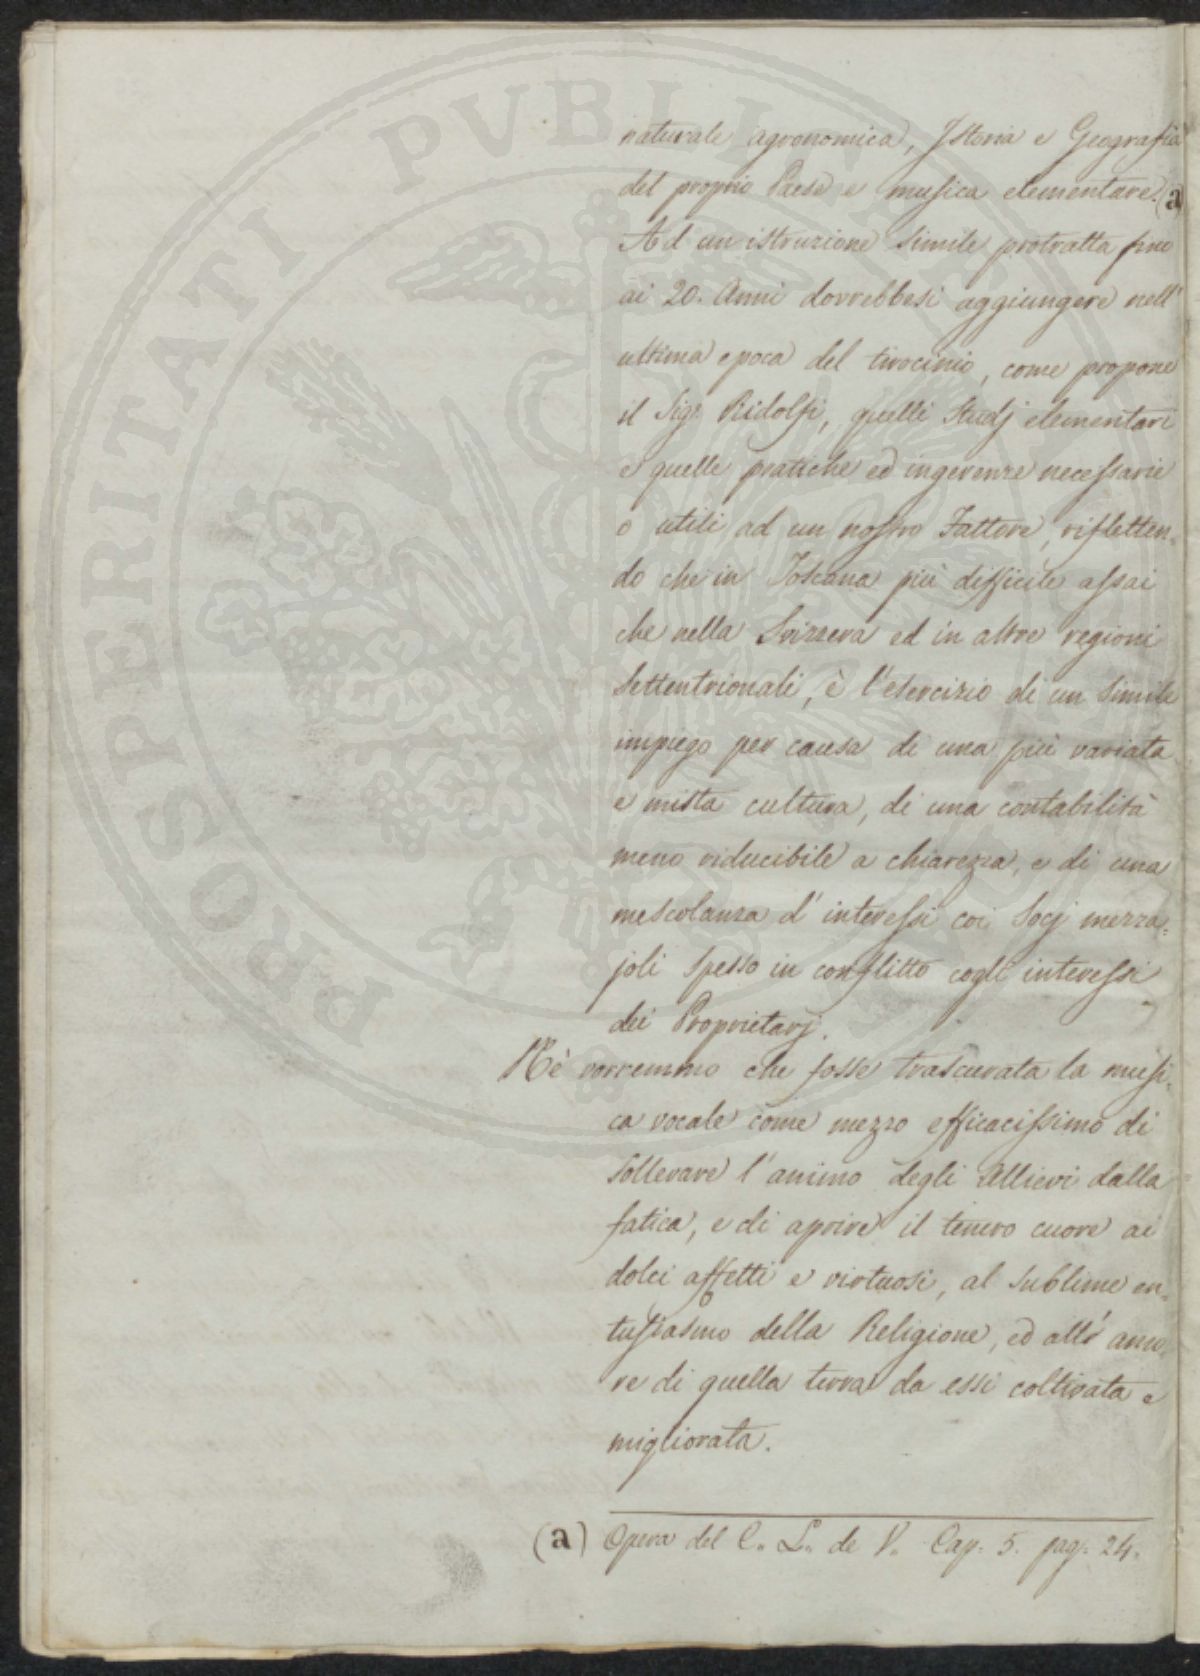 naturale agronomica, Istoria e Geografia
del proprio Paese e musica elementare. (a)
Ad un istruzione simile protratta fino
ai 20. Anni dovrebbesi aggiungere nell'
ultima epoca del tirocinio, come propone
il Sigr. Ridolfi, quelli Studj elementari
e quelle pratiche ed ingerenze necessarie
o utili ad un nostro Fattore, rifletten=
do che in Toscana più difficile assai
che nella Svizzera ed in altre regioni
Settentrionali, è l'esercizio di un simile
impiego per causa di una più variata
e mista cultura, di una contabilità
meno riducibile a chiarezza, e di una
mescolanza d'interessi coi Socj mezza=
joli spesso in conflitto cogli interessi
dei Proprietarj.
Nè vorremmo che fosse trascurata la musi=
ca vocale come mezzo efficacissimo di
sollevare l'animo degli Allievi dalla
fatica, e di aprire il tenero cuore ai
dolci affetti e virtuosi, al sublime en=
tusiasmo della Religione, ed all'amo=
re di quella terra da essi coltivata e
migliorata.
(a) Opera del C. L. de V. Cap. 5. pag. 24.
PROSPERITATI PVBLICAE